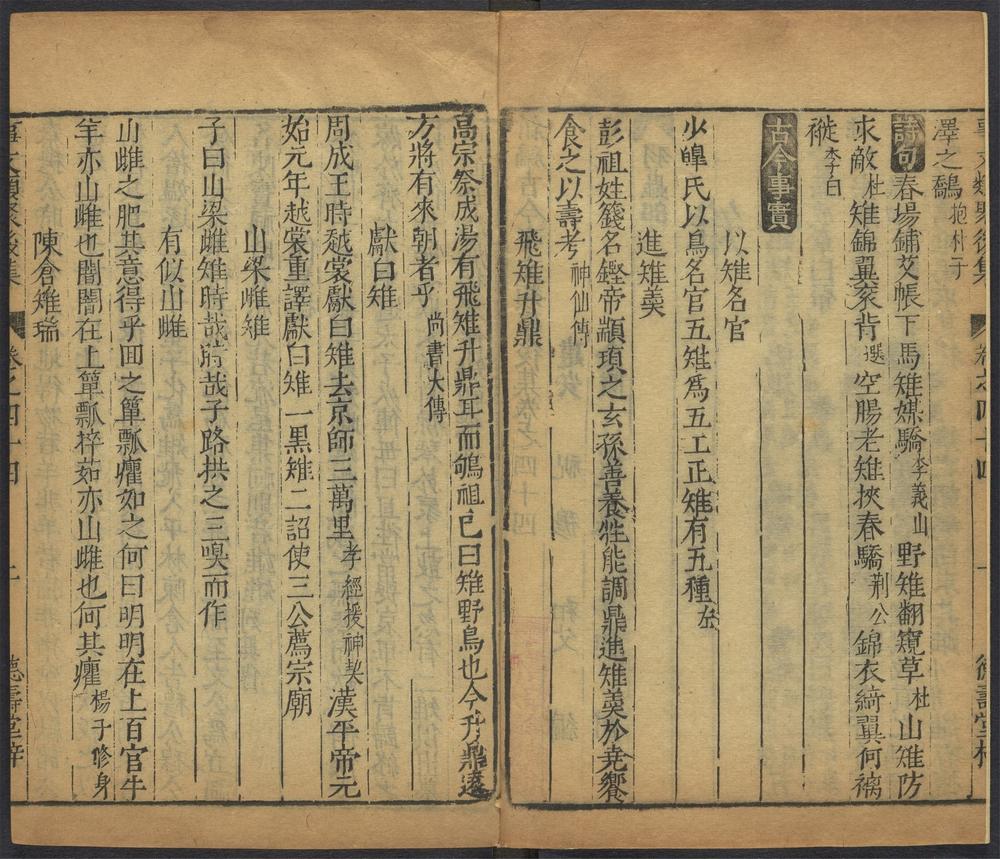 事文類聚後集 卷之四十四 德壽堂梓
澤之鷮抱朴子
詩句 春場鋪艾帳下馬雉媒驕李義山 野雉翻窺草杜 山雉防
求敵杜 雉錦翼衮背選 空腸老雉挾春驕荆公 錦衣綺翼何䙰
褷李白
古今事實
以雉名官
少皥氏以鳥名官五雉爲五工正雉有五種左
進雉羮
彭祖姓籛名鏗帝顓頊之玄孫善養性能調鼎進雉羮於堯饗
食之以壽考神仙傳
飛雉升鼎
髙宗祭成湯有飛雉升鼎耳而鳴祖已曰雉野鳥也今升鼎遠
方將有來朝者乎尚書大傳
獻白雉
周成王時越裳獻白雉去京師三萬里孝經援神契 漢平帝元
始元年越裳重譯獻白雉一黒雉二詔使三公薦宗廟
山梁雌雉
子曰山梁雌雉時哉時哉子路拱之三嗅而作
有似山雌
山雌之肥其意得乎囬之簞瓢癯如之何曰明明在上百官牛
羊亦山雌也闇闇在上簞瓢捽茹亦山雌也何其癯楊子修身
陳倉雉瑞
事文類聚後集 卷之四十四 二 德壽堂梓